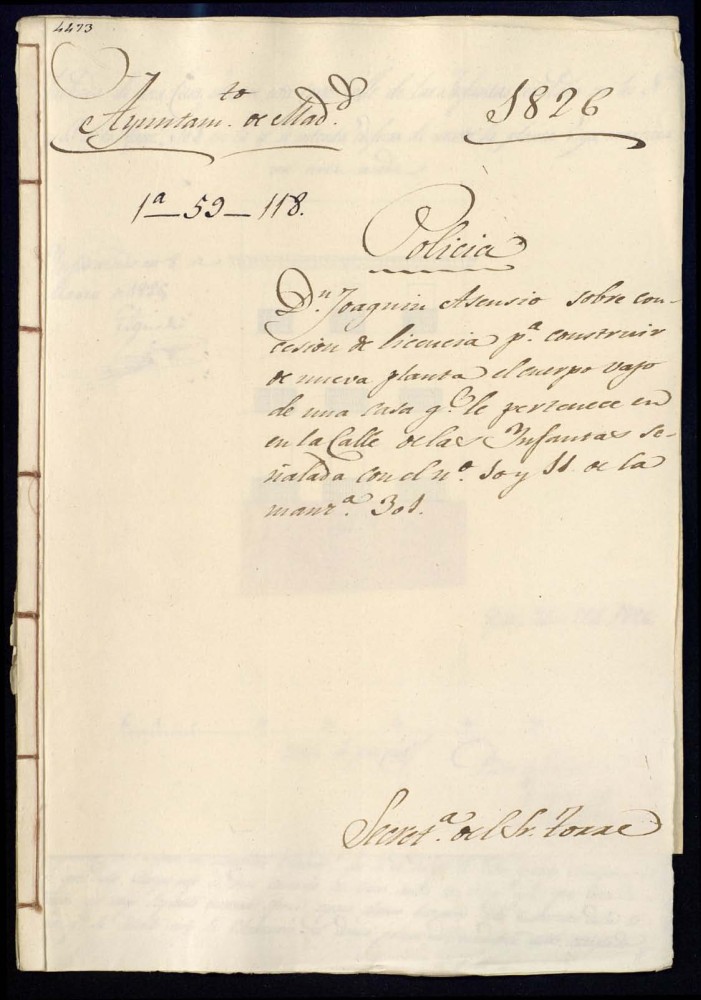 4473
Ayuntam.to de Mad.d
1826
1a_59_118.
Policia
Dn. Joaquin Asensio sobre con-
cesion de licencia pa. construir
de nueva planta el cuerpo vajo
de una casa qe. le pertenece en
en la Calle de las Infantas se-
ñalada con el no. 10 y 11 de la
manza. 301.
Secreta. del Sr. Torre